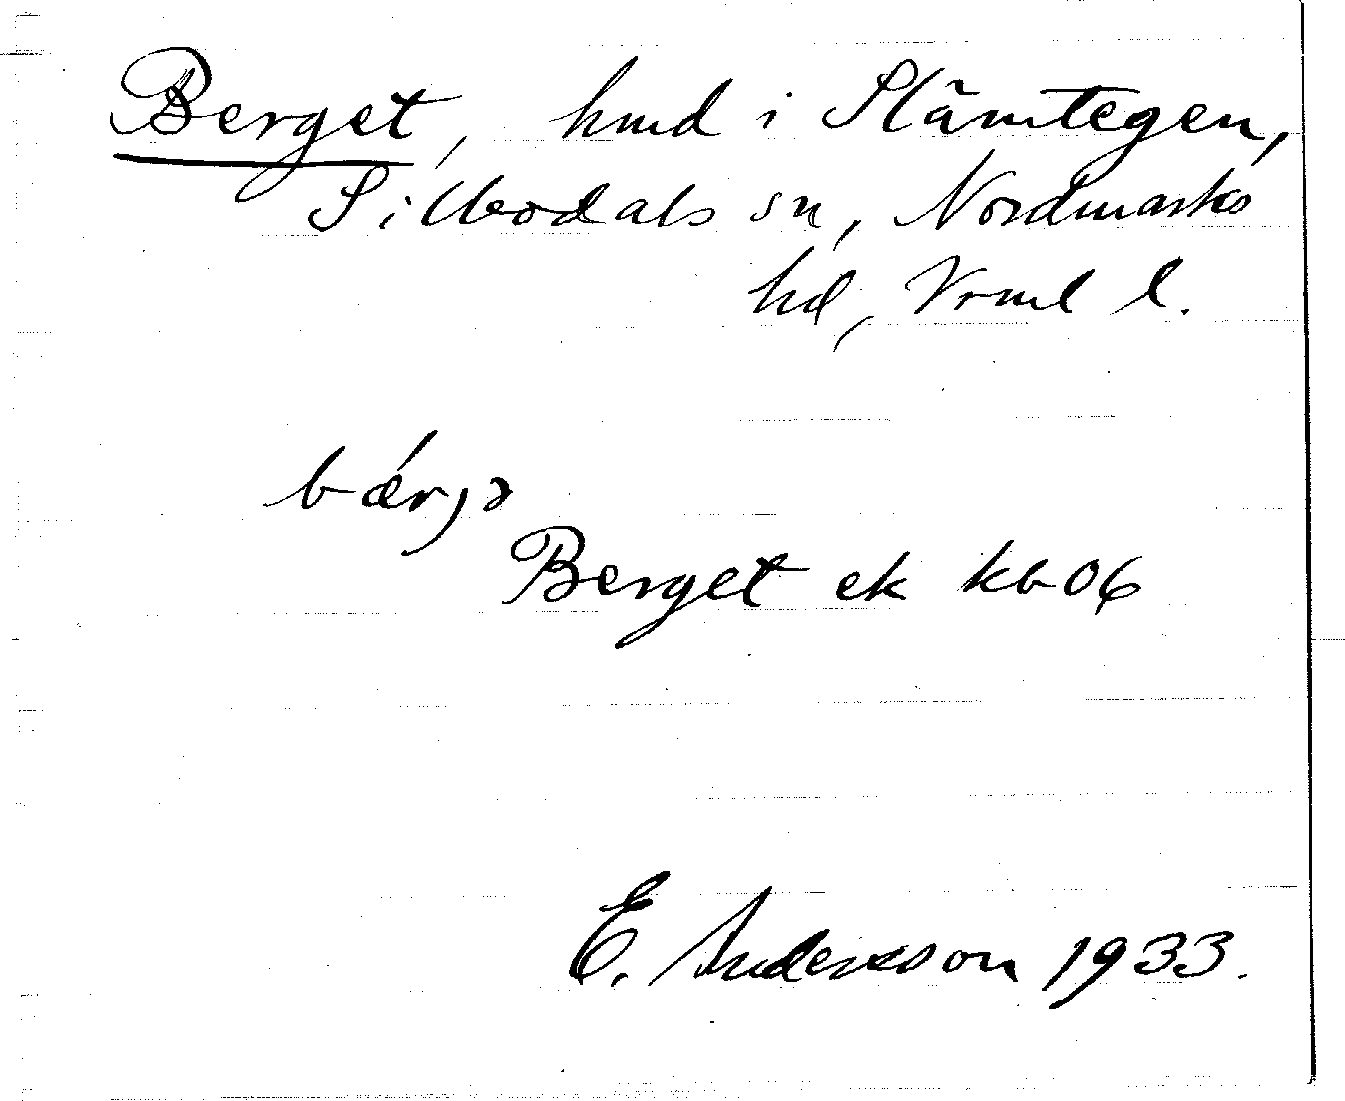 Berget, hmd i Slämtegen,
Silbodals sn, Nordmarks
hd, Vrml l.
bǽrjə
Berget ek kb06
E. Andersson 1933.